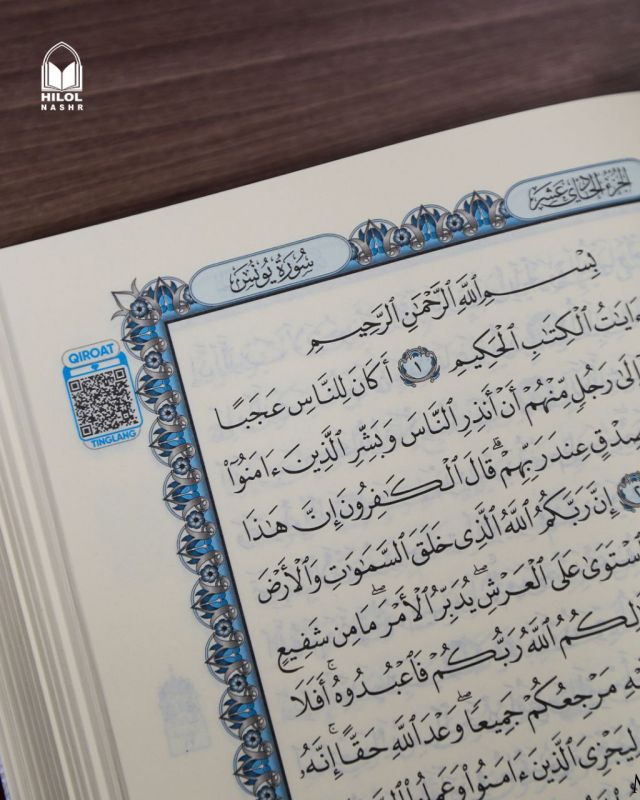 HILOL
NASHR
الجُزْءُ الحَادِيَ عَشَرَ
سُورَةُ يُونُسَ
QIROAT
TINGLANG
بِسْمِ ٱللَّهِ ٱلرَّحْمَٰنِ ٱلرَّحِيمِ
ءَايَٰتُ ٱلْكِتَٰبِ ٱلْحَكِيمِ ١ أَكَانَ لِلنَّاسِ عَجَبًا
إِلَىٰ رَجُلٍ مِّنْهُمْ أَنْ أَنذِرِ ٱلنَّاسَ وَبَشِّرِ ٱلَّذِينَ ءَامَنُوٓا۟
صِدْقٍ عِندَ رَبِّهِمْ ۗ قَالَ ٱلْكَٰفِرُونَ إِنَّ هَٰذَا
إِنَّ رَبَّكُمُ ٱللَّهُ ٱلَّذِى خَلَقَ ٱلسَّمَٰوَٰتِ وَٱلْأَرْضَ
ٱسْتَوَىٰ عَلَى ٱلْعَرْشِ ۖ يُدَبِّرُ ٱلْأَمْرَ ۖ مَا مِن شَفِيعٍ
ٱللَّهُ رَبُّكُمْ فَٱعْبُدُوهُ ۚ أَفَلَا
مَرْجِعُكُمْ جَمِيعًا ۖ وَعْدَ ٱللَّهِ حَقًّا ۚ إِنَّهُۥ
لِيَجْزِىَ ٱلَّذِينَ ءَامَنُوا۟ وَعَمِلُوا۟